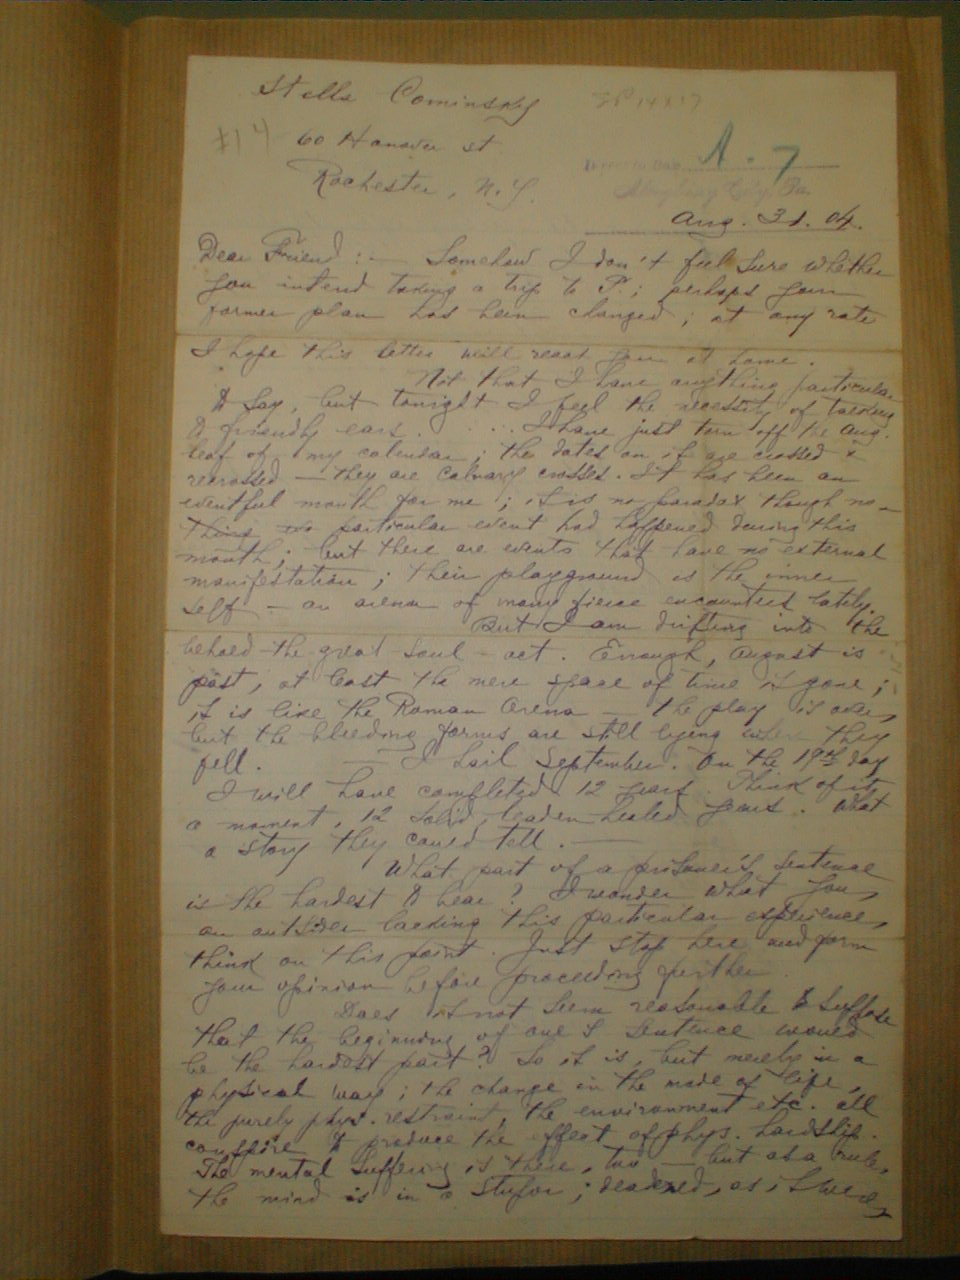 Stella Cominsky
#14
60 Hanover st
Rochester, N.Y.
A. 7
Allegheny City, Pa.
Aug. 31. 04.
Dear Friend : — Somehow I don't feel sure whether
you intend taking a trip to P.; perhaps your
former plan has been changed; at any rate
I hope this letter will reach you at home.
Not that I have anything particular
to say, but tonight I feel the necessity of talking
to friendly ears. .... I have just torn off the Aug.
leaf of my calendar; the dates on it are crossed &
recrossed — they are calvary crosses. It has been an
eventful month for me; it is no paradox though no-
thing no particular event had happened during this
month; but there are events that have no external
manifestation; their playground is the inner
self — an arena of many fierce encounters lately.
But I am drifting into the
behold-the-great-soul-act. Enough, August is
past, at least the mere space of time is gone;
it is like the Roman Arena — the play is over,
but the bleeding forms are still lying where they
fell. — I hail September. On the 19th day
I will have completed 12 years. Think of it
a moment, 12 solid, leaden heeled years. What
a story they could tell. —
What part of a prisoner's sentence
is the hardest to bear? I wonder what you,
an outsider lacking this particular experience,
think on this point. Just stop here and form
your opinion before proceeding further.
Does it not seem reasonable to suppose
that the beginning of one's sentence would
be the hardest part? So it is, but merely in a
physical way; the change in the mode of life,
the purely phys. restraint, the environment etc. all
conspire to produce the effect of phys. hardship.
The mental suffering is there, too — but as a rule,
the mind is in a stupor; deadened, as it were,